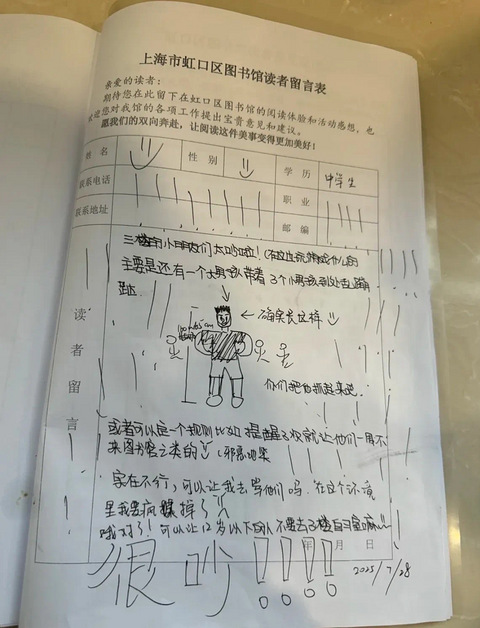 上海市虹口区图书馆读者留言表
亲爱的读者：
期待您在此留下在虹口区图书馆的阅读体验和活动感想，也
欢迎您对我馆的各项工作提出宝贵意见和建议。
愿我们的双向奔赴，让阅读这件美事变得更加美好！
姓 名 性 别 学 历 中学生
联系电话 职 业
联系地址 邮 编
读者留言
三楼的小朋友们太吵啦！
主要是还有一个大男孩带着3个小男孩到处去蹦
跶
← 确实长这样
你们把他抓起来吧.
或者可以定一个规则比如提醒3次就让他们一周不
来图书馆之类的 (邪恶地笑
实在不行，可以让我去骂他们吗．在这个环境
里我要疯 掉了
哦对了！可以让12岁以下的人不要去3楼自习室嘛
年 月 日
很吵！！！！
2025/7/28